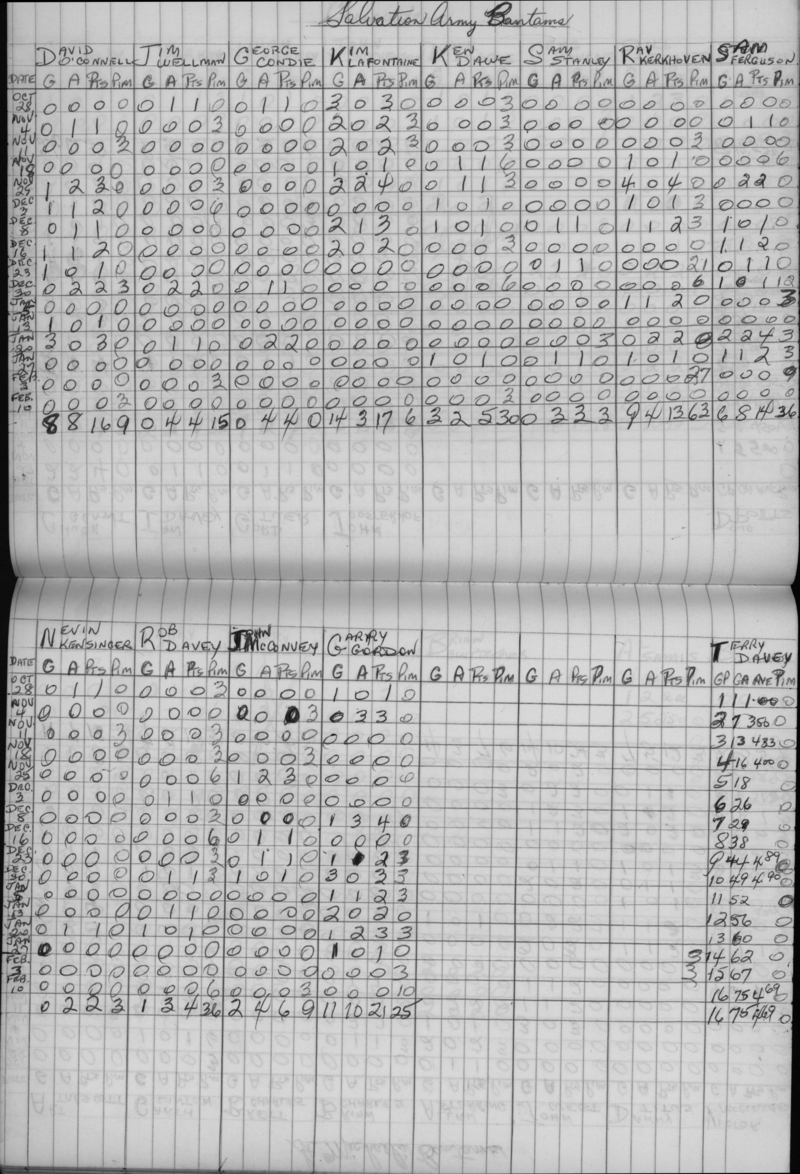 Salvation Army Bantams
DAVID O'CONNELL JIM WELLMAN GEORGE CONDIE KIM LAFONTAINE KEN DAWE SAM STANLEY RAY KERKHOVEN SAM FERGUSON
DATE G A Pts Pim G A Pts Pim G A Pts Pim G A Pts Pim G A Pts Pim G A Pts Pim G A Pts Pim G A Pts Pim
OCT 28 0 0 0 0 0 1 1 0 0 1 1 0 3 0 3 0 0 0 0 3 0 0 0 0 0 0 0 0 0 0 0 0
NOV 4 0 1 1 0 0 0 0 3 0 0 0 0 2 0 2 3 0 0 0 3 0 0 0 0 0 0 0 0 0 1 1 0
NOV 11 0 0 0 3 0 0 0 0 0 0 0 0 2 0 2 3 0 0 0 3 0 0 0 0 0 0 0 3 0 0 0 0
NOV 18 0 0 0 0 0 0 0 0 0 0 0 0 1 0 1 0 0 1 1 6 0 0 0 0 1 0 1 0 0 0 0 6
NOV 25 1 2 3 0 0 0 0 3 0 0 0 0 2 2 4 0 0 1 1 3 0 0 0 0 4 0 4 0 0 2 2 0
DEC 3 1 1 2 0 0 0 0 6 0 0 0 0 0 0 0 0 1 0 1 0 0 0 0 0 1 0 1 3 0 0 0 0
DEC 8 0 1 1 0 0 0 0 0 0 0 0 0 2 1 3 0 1 0 1 0 0 1 1 0 1 1 2 3 1 0 1 0
DEC 16 1 1 2 0 0 0 0 0 0 0 0 0 2 0 2 0 0 0 0 3 0 0 0 0 0 0 0 0 1 1 2 0
DEC 23 1 0 1 0 0 0 0 0 0 0 0 0 0 0 0 0 0 0 0 0 0 1 1 0 0 0 0 21 0 1 1 0
DEC 30 0 2 2 3 0 2 2 0 0 1 1 0 0 0 0 0 0 0 0 6 0 0 0 0 0 0 0 6 1 0 1 12
JAN 0 0 0 0 0 0 0 0 0 0 0 0 0 0 0 0 0 0 0 0 0 0 0 0 1 1 2 0 0 0 0 3
JAN 13 1 0 1 0 0 0 0 0 0 0 0 0 0 0 0 0 0 0 0 0 0 0 0 0 0 0 0 0 0 0 0 0
JAN 20 3 0 3 0 0 1 1 0 0 2 2 0 0 0 0 0 0 0 0 0 0 0 0 3 0 2 2 0 2 2 4 3
JAN 27 0 0 0 0 0 0 0 0 0 0 0 0 0 0 0 0 1 0 1 0 0 1 1 0 1 0 1 0 1 1 2 3
FEB 3 0 0 0 0 0 0 0 3 0 0 0 0 0 0 0 0 0 0 0 0 0 0 0 0 0 0 0 27 0 0 0 9
FEB. 10 0 0 0 3 0 0 0 0 0 0 0 0 0 0 0 0 0 0 0 3 0 0 0 0 0 0 0 0 0 0 0 0
8 8 16 9 0 4 4 15 0 4 4 0 14 3 17 6 3 2 5 30 0 3 3 3 9 4 13 63 6 8 14 36
NEVIN KENSINGER ROB DAVEY JOHN McCONVEY GARRY GORDON TERRY DAVEY
DATE G A Pts Pim G A Pts Pim G A Pts Pim G A Pts Pim G A Pts Pim G A Pts Pim G A Pts Pim GP GA AVE Pim
OCT 28 0 1 1 0 0 0 0 3 0 0 0 0 1 0 1 0 1 1 1.00 0
NOV 4 0 0 0 0 0 0 0 0 0 0 0 3 0 3 3 0 2 7 350 0
NOV 11 0 0 0 3 0 0 0 3 0 0 0 0 0 0 0 0 3 13 433 0
NOV 18 0 0 0 0 0 0 0 3 0 0 0 3 0 0 0 0 4 16 400 0
NOV 25 0 0 0 0 0 0 0 6 1 2 3 0 0 0 0 0 5 18 0
DEC. 3 0 0 0 0 0 1 1 0 0 0 0 0 0 0 0 0 6 26 0
DEC 8 0 0 0 0 0 0 0 3 0 0 0 0 1 3 4 0 7 29 0
DEC. 16 0 0 0 0 0 0 0 6 0 1 1 0 0 0 0 0 8 38 0
DEC. 23 0 0 0 0 0 0 0 3 0 1 1 0 1 1 2 3 9 44 4.89 0
0 0 0 0 0 1 1 3 1 0 1 0 3 0 3 3 10 49 4.90 0
0 0 0 0 0 0 0 0 0 0 0 0 1 1 2 3 11 52 0
0 0 0 0 0 1 1 0 0 0 0 0 2 0 2 0 12 56 0
0 1 1 0 1 0 1 0 0 0 0 0 1 2 3 3 13 60 0
JAN 27 0 0 0 0 0 0 0 0 0 0 0 0 1 0 1 0 3 14 62 0
FEB. 3 0 0 0 0 0 0 0 0 0 0 0 0 0 0 0 3 3 15 67 0
FEB. 10 0 0 0 0 0 0 0 6 0 0 0 3 0 0 0 10 16 75 4.69 0
0 2 2 3 1 3 4 36 2 4 6 9 11 10 21 25 16 75 4.69 0